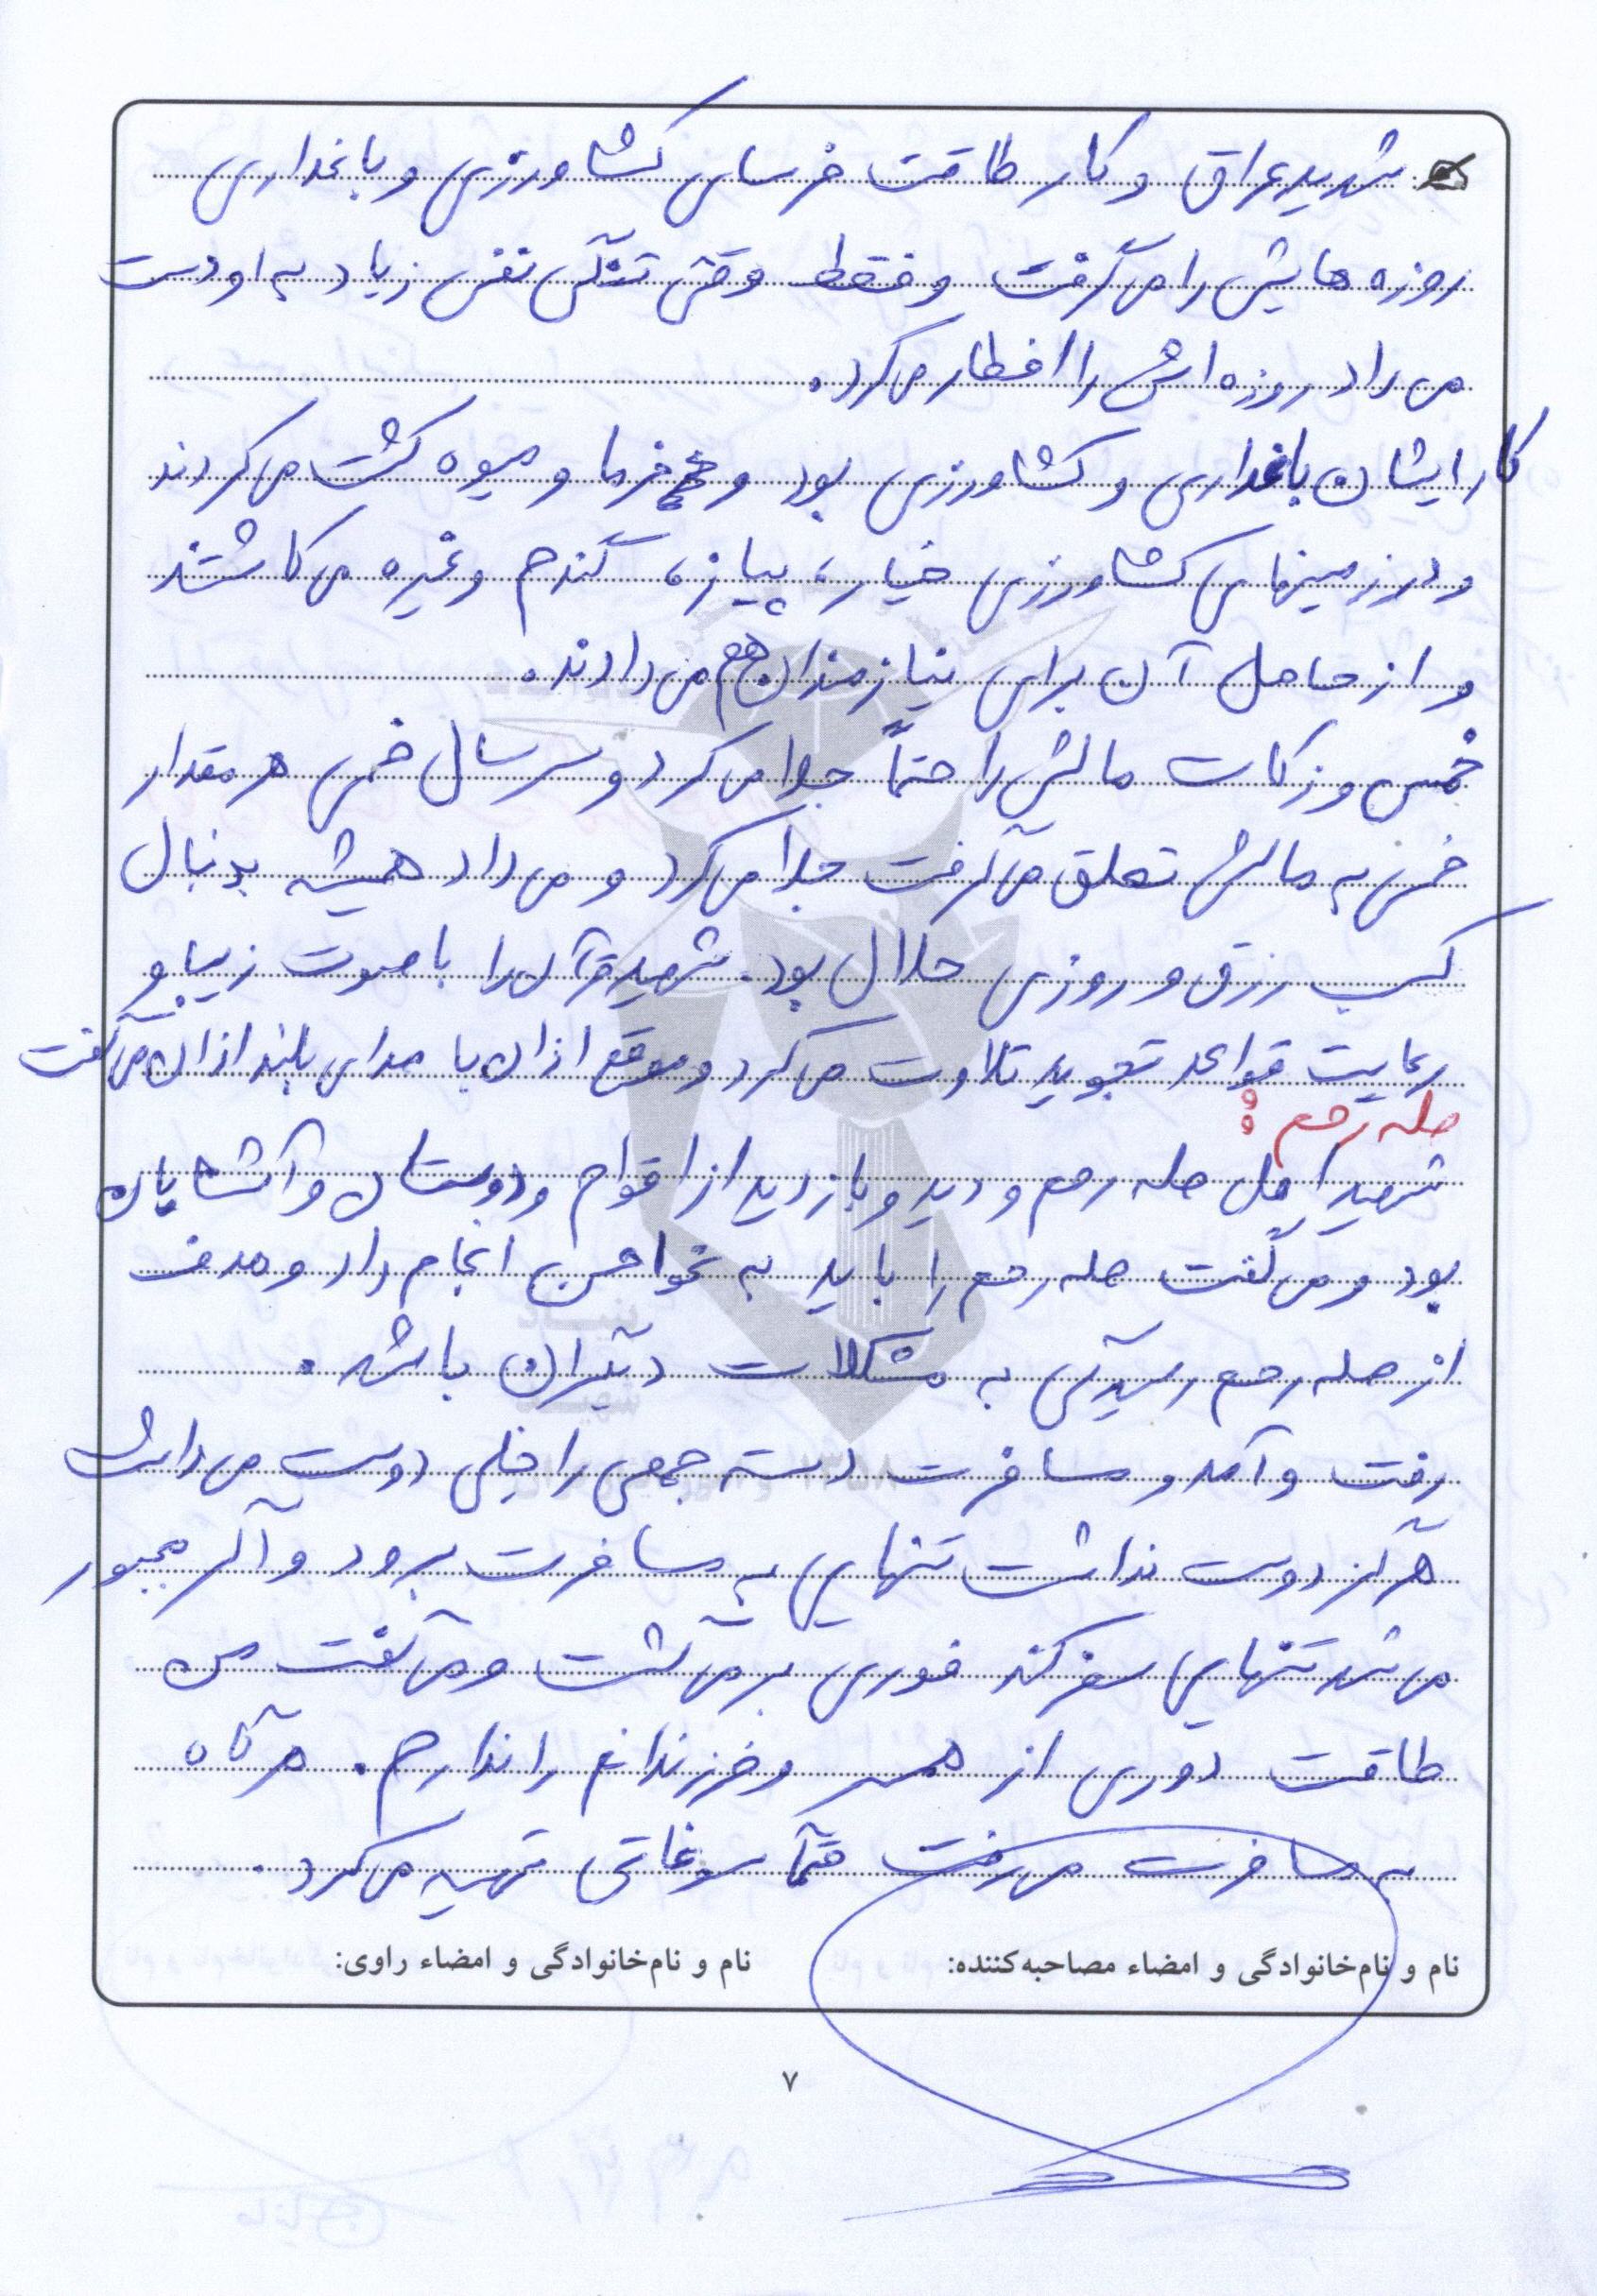 شدید عراق و کار طاقت فرسای کشاورزی و باغداری
روزه هایش را می گرفت و فقط وقتی تنگی نفس زیاد به او دست
می داد روزه اش را افطار می کرد.
کار ایشان باغداری و کشاورزی بود و خرما و میوه کشت می کردند
و در زمینهای کشاورزی خیار، پیاز، گندم و غیره می کاشتند
و از حاصل آن برای نیازمندان هم می دادند.
خمس و زکات مالش را حتماً جدا می کرد و سر سال خمسی هر مقدار
خمس به مالش تعلق می گرفت جدا می کرد و می داد همیشه بدنبال
کسب رزق و روزی حلال بود. شهید قرآن را با صوت زیبا و
رعایت قواعد تجوید تلاوت می کرد و موقع اذان با صدای بلند اذان می گفت
صله رحم :
شهید اهل صله رحم و دید و بازدید از اقوام و دوستان و آشنایان
بود و می گفت صله رحم را باید به نحو احسن انجام داد و هدف
از صله رحم رسیدگی به مشکلات دیگران باشد.
رفت و آمد و مسافرت دسته جمعی را خیلی دوست می داشت
هرگز دوست نداشت تنهایی به مسافرت برود و اگر مجبور
می شد تنهایی سفر کند فوری بر می گشت و می گفت من
طاقت دوری از همسر و فرزندانم را ندارم. هرگاه
به مسافرت می رفت حتماً سوغاتی تهیه می کرد.
نام و نام‌خانوادگی و امضاء مصاحبه‌کننده: نام و نام‌خانوادگی و امضاء راوی:
۷